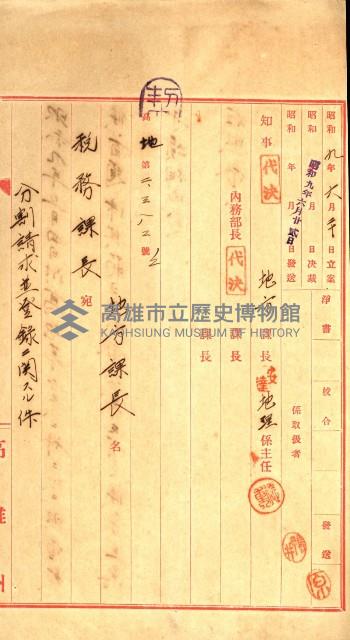 昭和九年六月 日立案
昭和 年 月 日決裁
昭和 年 月 日發送
昭和九年六月廿貳日
淨書
校合
發送
係取扱者
知事
代決
內務部長
代決
地方課長
課長
課長
地理係主任
高地第二、三八二號
稅務課長宛
地方課長名
分割請求並登録ニ関スル件
高雄州
高雄市立歷史博物館
KAOHSIUNG MUSEUM OF HISTORY